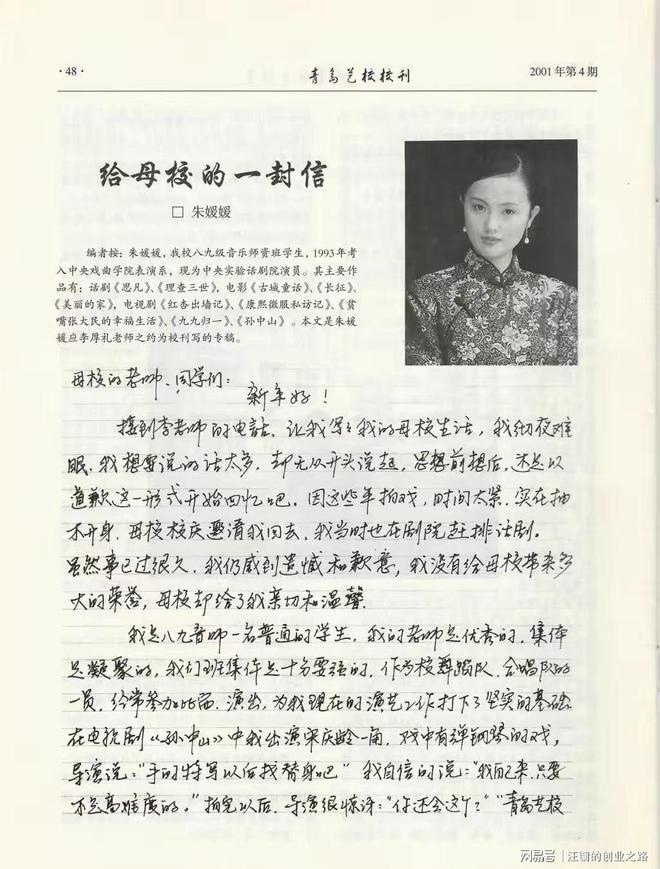 ·48·
青岛艺校校刊
2001年第4期
给母校的一封信
□ 朱媛媛
编者按：朱媛媛，我校八九级音乐师资班学生，1993年考
入中央戏曲学院表演系，现为中央实验话剧院演员。其主要作
品有：话剧《思凡》、《理查三世》，电影《古城童话》、《长征》、
《美丽的家》，电视剧《红杏出墙记》、《康熙微服私访记》、《贫
嘴张大民的幸福生活》、《九九归一》、《孙中山》。本文是朱媛
媛应李厚礼老师之约为校刊写的专稿。
母校的老师、同学们：
新年好！
接到李老师的电话，让我写写我的母校生活，我彻夜难
眠，我想要说的话太多，却无从开头说起，思想前想后，还是以
道歉这一形式开始回忆吧。因这些年拍戏，时间太紧，实在抽
不开身，母校校庆邀请我回去，我当时也在剧院赶排话剧。
虽然事已过很久，我仍感到遗憾和歉意，我没有给母校带来多
大的荣誉，母校却给了我亲切和温馨。
我是八九音师一名普通的学生，我的老师是优秀的，集体
是凝聚的，我们班集体是十分要强的，作为校舞蹈队、合唱队的
一员，经常参加比赛、演出，为我现在的演艺工作打下了坚实的基础
在电视剧《孙中山》中我出演宋庆龄一角，戏中有弹钢琴的戏，
导演说：“手的特写以后找替身吧” 我自信的说：“我自己来，只要
不是高难度的。”拍完以后，导演很惊讶：“你还会这个？”“青岛艺校
网易号 | 汪镛的创业之路